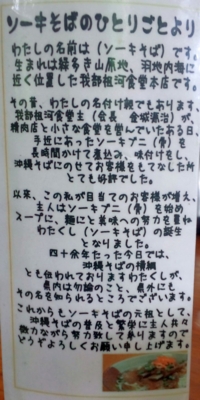 ソーキそばのひとりごとより
わたしの名前は（ソーキそば）です。
生まれは緑多き山原地、羽地内海に
近く位置した我部祖河食堂本店です。
その昔、わたしの名付け親でもあります、
我部祖河食堂主（会長　金城源治）が、
精肉店と小さな食堂を営んでいたある日、
手近にあったソーキブニ（骨）を
長時間かけて煮込み、味付けし、
沖縄そばにのせてお客様をもてなした所
とても好評でした。
以来、この私が目当てのお客様が増え、
主人はソーキブニ（骨）を始め
スープに、麺にと美味への努力を重ね
わたくし（ソーキそば）の誕生
となりました。
四十余年たった今日では、
沖縄そばの横綱
とも伝われておりますわたくしが、
県内は勿論のこと、県外にも
その名を知られるところでございます。
これからもソーキそばの元祖として、
沖縄そばの普及と繁栄に主人共々
微力ながら努力致して参りますので
どうぞよろしくお願い申し上げます。